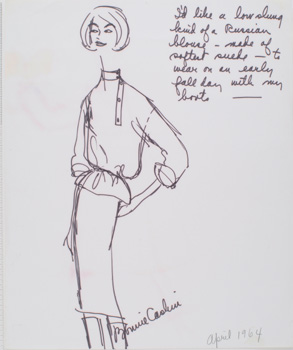 I'd like a low slung
kind of a Russian
blouse - made of
softest suede - to
wear on an early
fall day with my
boots —
Bonnie Cashin
April 1964